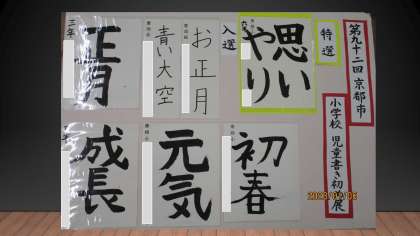 第九十二回 京都市
小学校 児童書き初め展
特選
思い
やり
入選
お正月
青い大空
三年
正月
初春
元気
成長